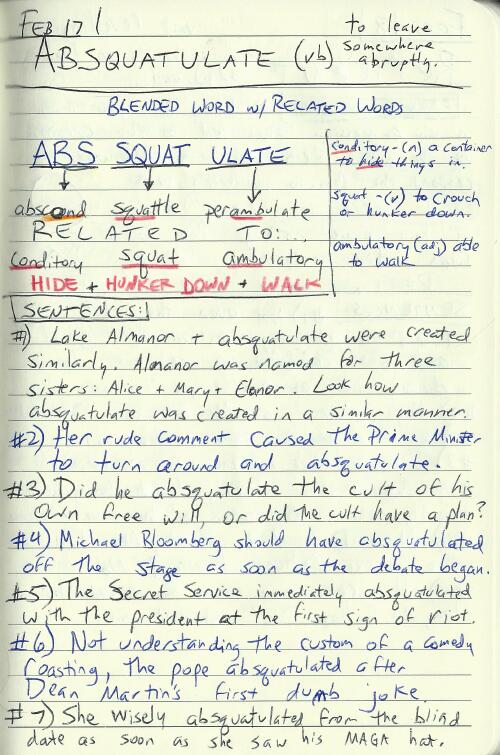 FEB 17
ABSQUATULATE (vb) to leave somewhere abruptly.
BLENDED WORD w/ RELATED WORDS
ABS SQUAT ULATE
abscond squattle perambulate
RELATED TO:...
conditory squat ambulatory
HIDE + HUNKER DOWN + WALK
conditory - (n) a container
to hide things in.
squat - (v) to crouch
or hunker down.
ambulatory (adj) able
to walk
SENTENCES:
#1) Lake Almanor + absquatulate were created
similarly. Almanor was named for three
sisters: Alice + Mary + Elanor. Look how
absquatulate was created in a similar manner.
#2) Her rude comment caused the Prime Minister
to turn around and absquatulate.
#3) Did he absquatulate the cult of his
own free will, or did the cult have a plan?
#4) Michael Bloomberg should have absquatulated
off the stage as soon as the debate began.
#5) The Secret Service immediately absquatulated
with the president at the first sign of riot.
#6) Not understanding the custom of a comedy
roasting, the pope absquatulated after
Dean Martin's first dumb joke.
#7) She wisely absquatulated from the blind
date as soon as she saw his MAGA hat.